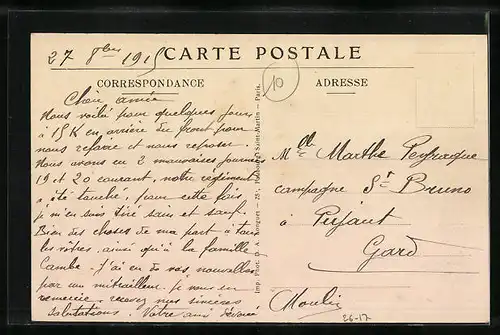 27 8bre 1915
CARTE POSTALE
CORRESPONDANCE
ADRESSE
10
Chère amie
Nous voilà pour quelques jours
à 15 K en arrière du front pour
nous refaire et nous reposer.
Nous avons eu 2 mauvaises journées
19 et 20 courant, notre régiment
a été touché, pour cette fois
je m'en suis tiré sain et sauf.
Bien des choses de ma part à tous
les vôtres, ainsi qu'à la famille
Cambe. J'ai eu de vos nouvelles
par un mitrailleur je vous en
remercie, recevez mes sincères
salutations. Votre ami
Imp. Phot. D. A. Longuet - Faubourg Saint-Martin - Paris.
Mlle Marthe Peyraque
campagne St Bruno
à Pujaut
Gard
Moulin
26-17